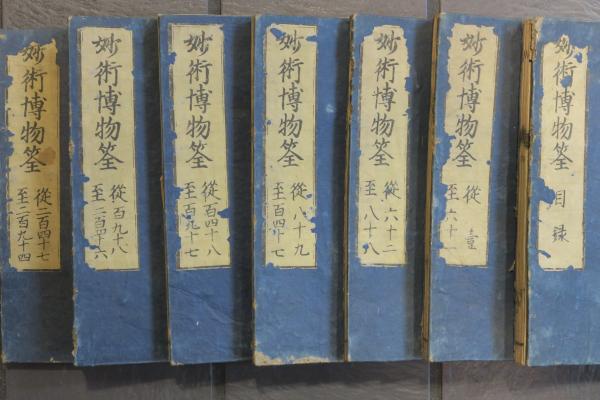 妙術博物筌
目録
妙術博物筌
從壹
至六十一
妙術博物筌
從六十二
至八十八
妙術博物筌
從八十九
至百四十七
妙術博物筌
從百四十八
至百九十七
妙術博物筌
從百九十八
至二百四十六
妙術博物筌
從二百四十七
至二百九十四